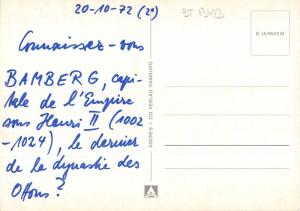 20-10-72 (2e)
Connaissez-vous
BAMBERG, capi-
tale de l'Empire
sous Henri II (1002
-1024), le dernier
de la dynastie des
Ottons?
ANDRES + CO VERLAG HAMBURG